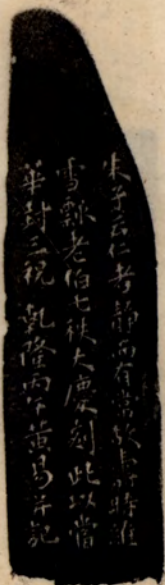 朱子云仁者靜而有常故壽時維
雪瓢老伯七秩大慶刻此以當
華封三祝乾隆丙午黃易并記